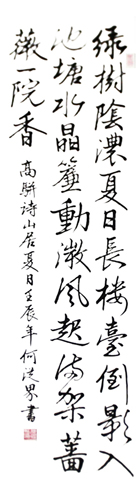 绿樹陰濃夏日長樓臺倒影入
池塘水晶簾動微風起滿架薔
薇一院香
高駢詩山居夏日壬辰年何從界書